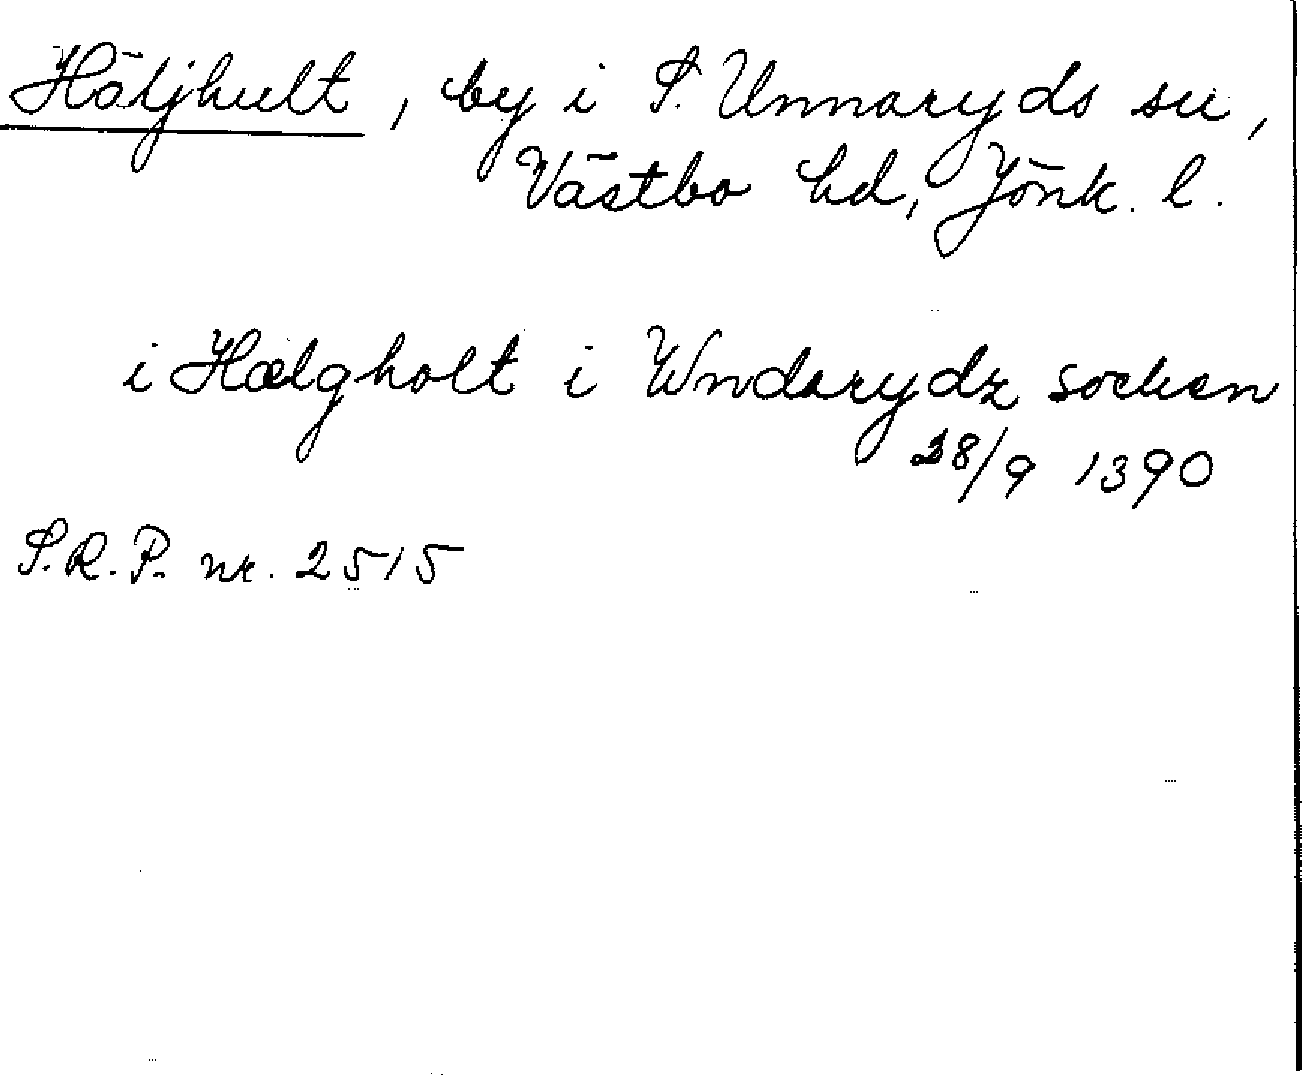 Häljhult, by i S. Unnaryds sn,
Västbo hd, Jönk. l.
i Hælgholt i Wndarydz socken
28/9 1390
S.R.P. nr. 2515